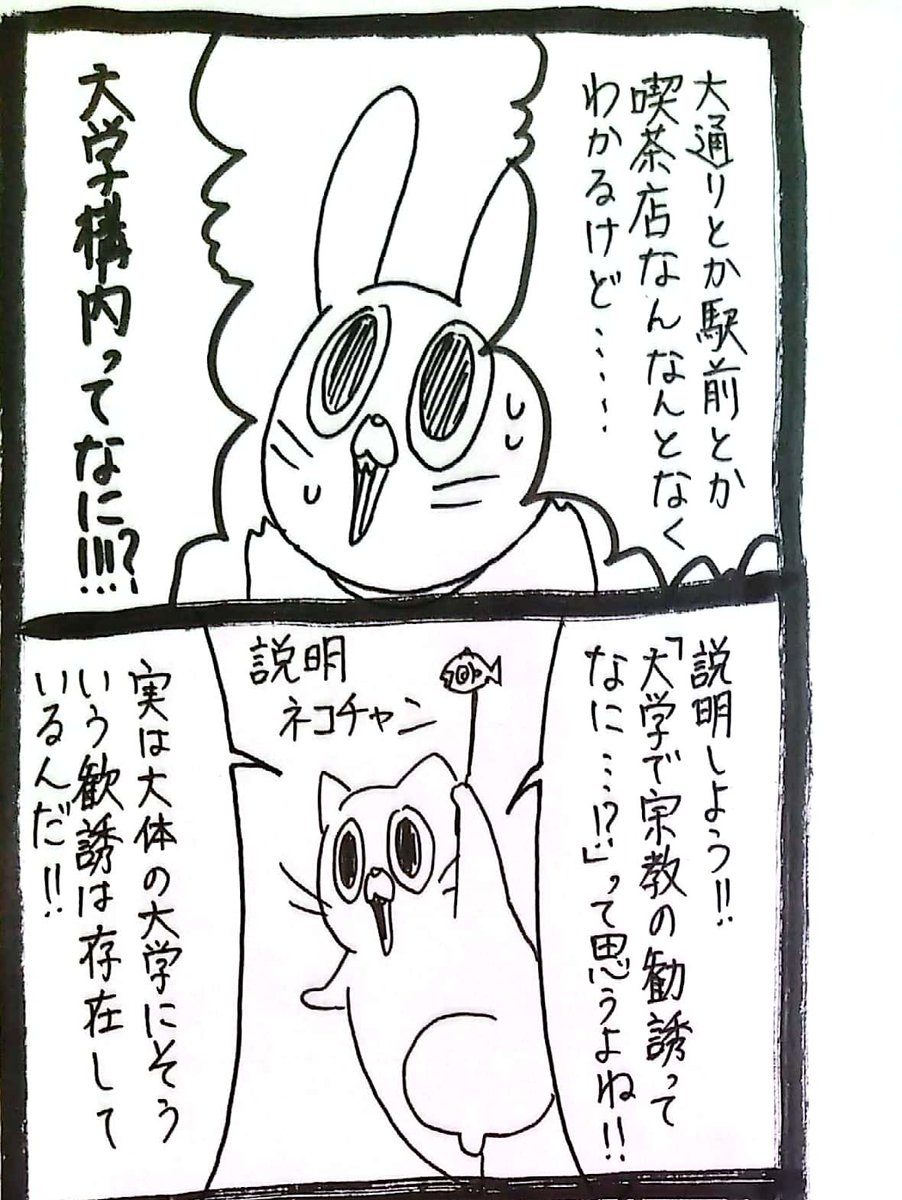 大通りとか駅前とか
喫茶店なんなんとなく
わかるけど・・・・・
大学構内ってなに!!!?
説明しよう!!
「大学で宗教の勧誘って
なに・・・!?」って思うよね!!
説明
ネコチャン
実は大体の大学にそう
いう歓誘は存在して
いるんだ!!